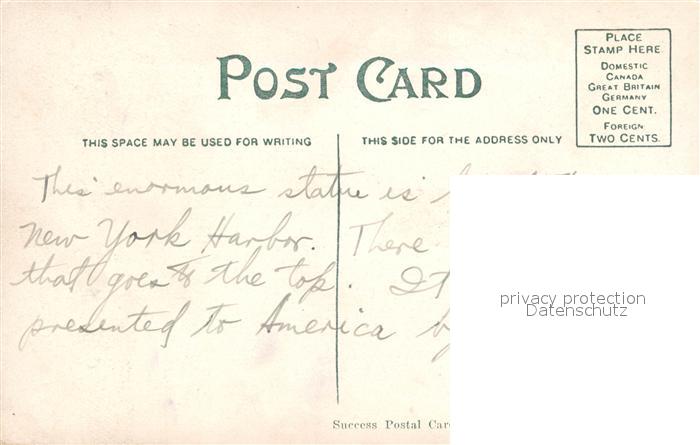 POST CARD
PLACE
STAMP HERE
DOMESTIC
CANADA
GREAT BRITAIN
GERMANY
ONE CENT.
FOREIGN
TWO CENTS.
THIS SPACE MAY BE USED FOR WRITING
THIS SIDE FOR THE ADDRESS ONLY
This enormous statue is
New York Harbor. There
that goes to the top. It
presented to America by
privacy protection
Datenschutz
Success Postal Car